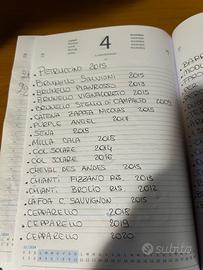 4
PETRUCCINO 2015
BRUNELLO SALVIONI 2015
BRUNELLO PIANROSSO 2013
BRUNELLO VIGNALORETO 2015
BRUNELLO STELLA DI CAMPALTO 2005
CATENA ZAPATA NICOLAS 2015
PURPLE ANGEL 2017
SENA 2015
MILLA CALA 2015
COL SOLARE 2014
COL SOLARE 2016
CHEVAL DES ANDES 2015
CHIANTI FIZZANO RIS. 2015
CHIANTI BROLIO RIS. 2012
LAFOA C. SAUVIGNON 2015
CEPPARELLO 2018
CEPPARELLO 2019
CEPPARELLO 2020
subito